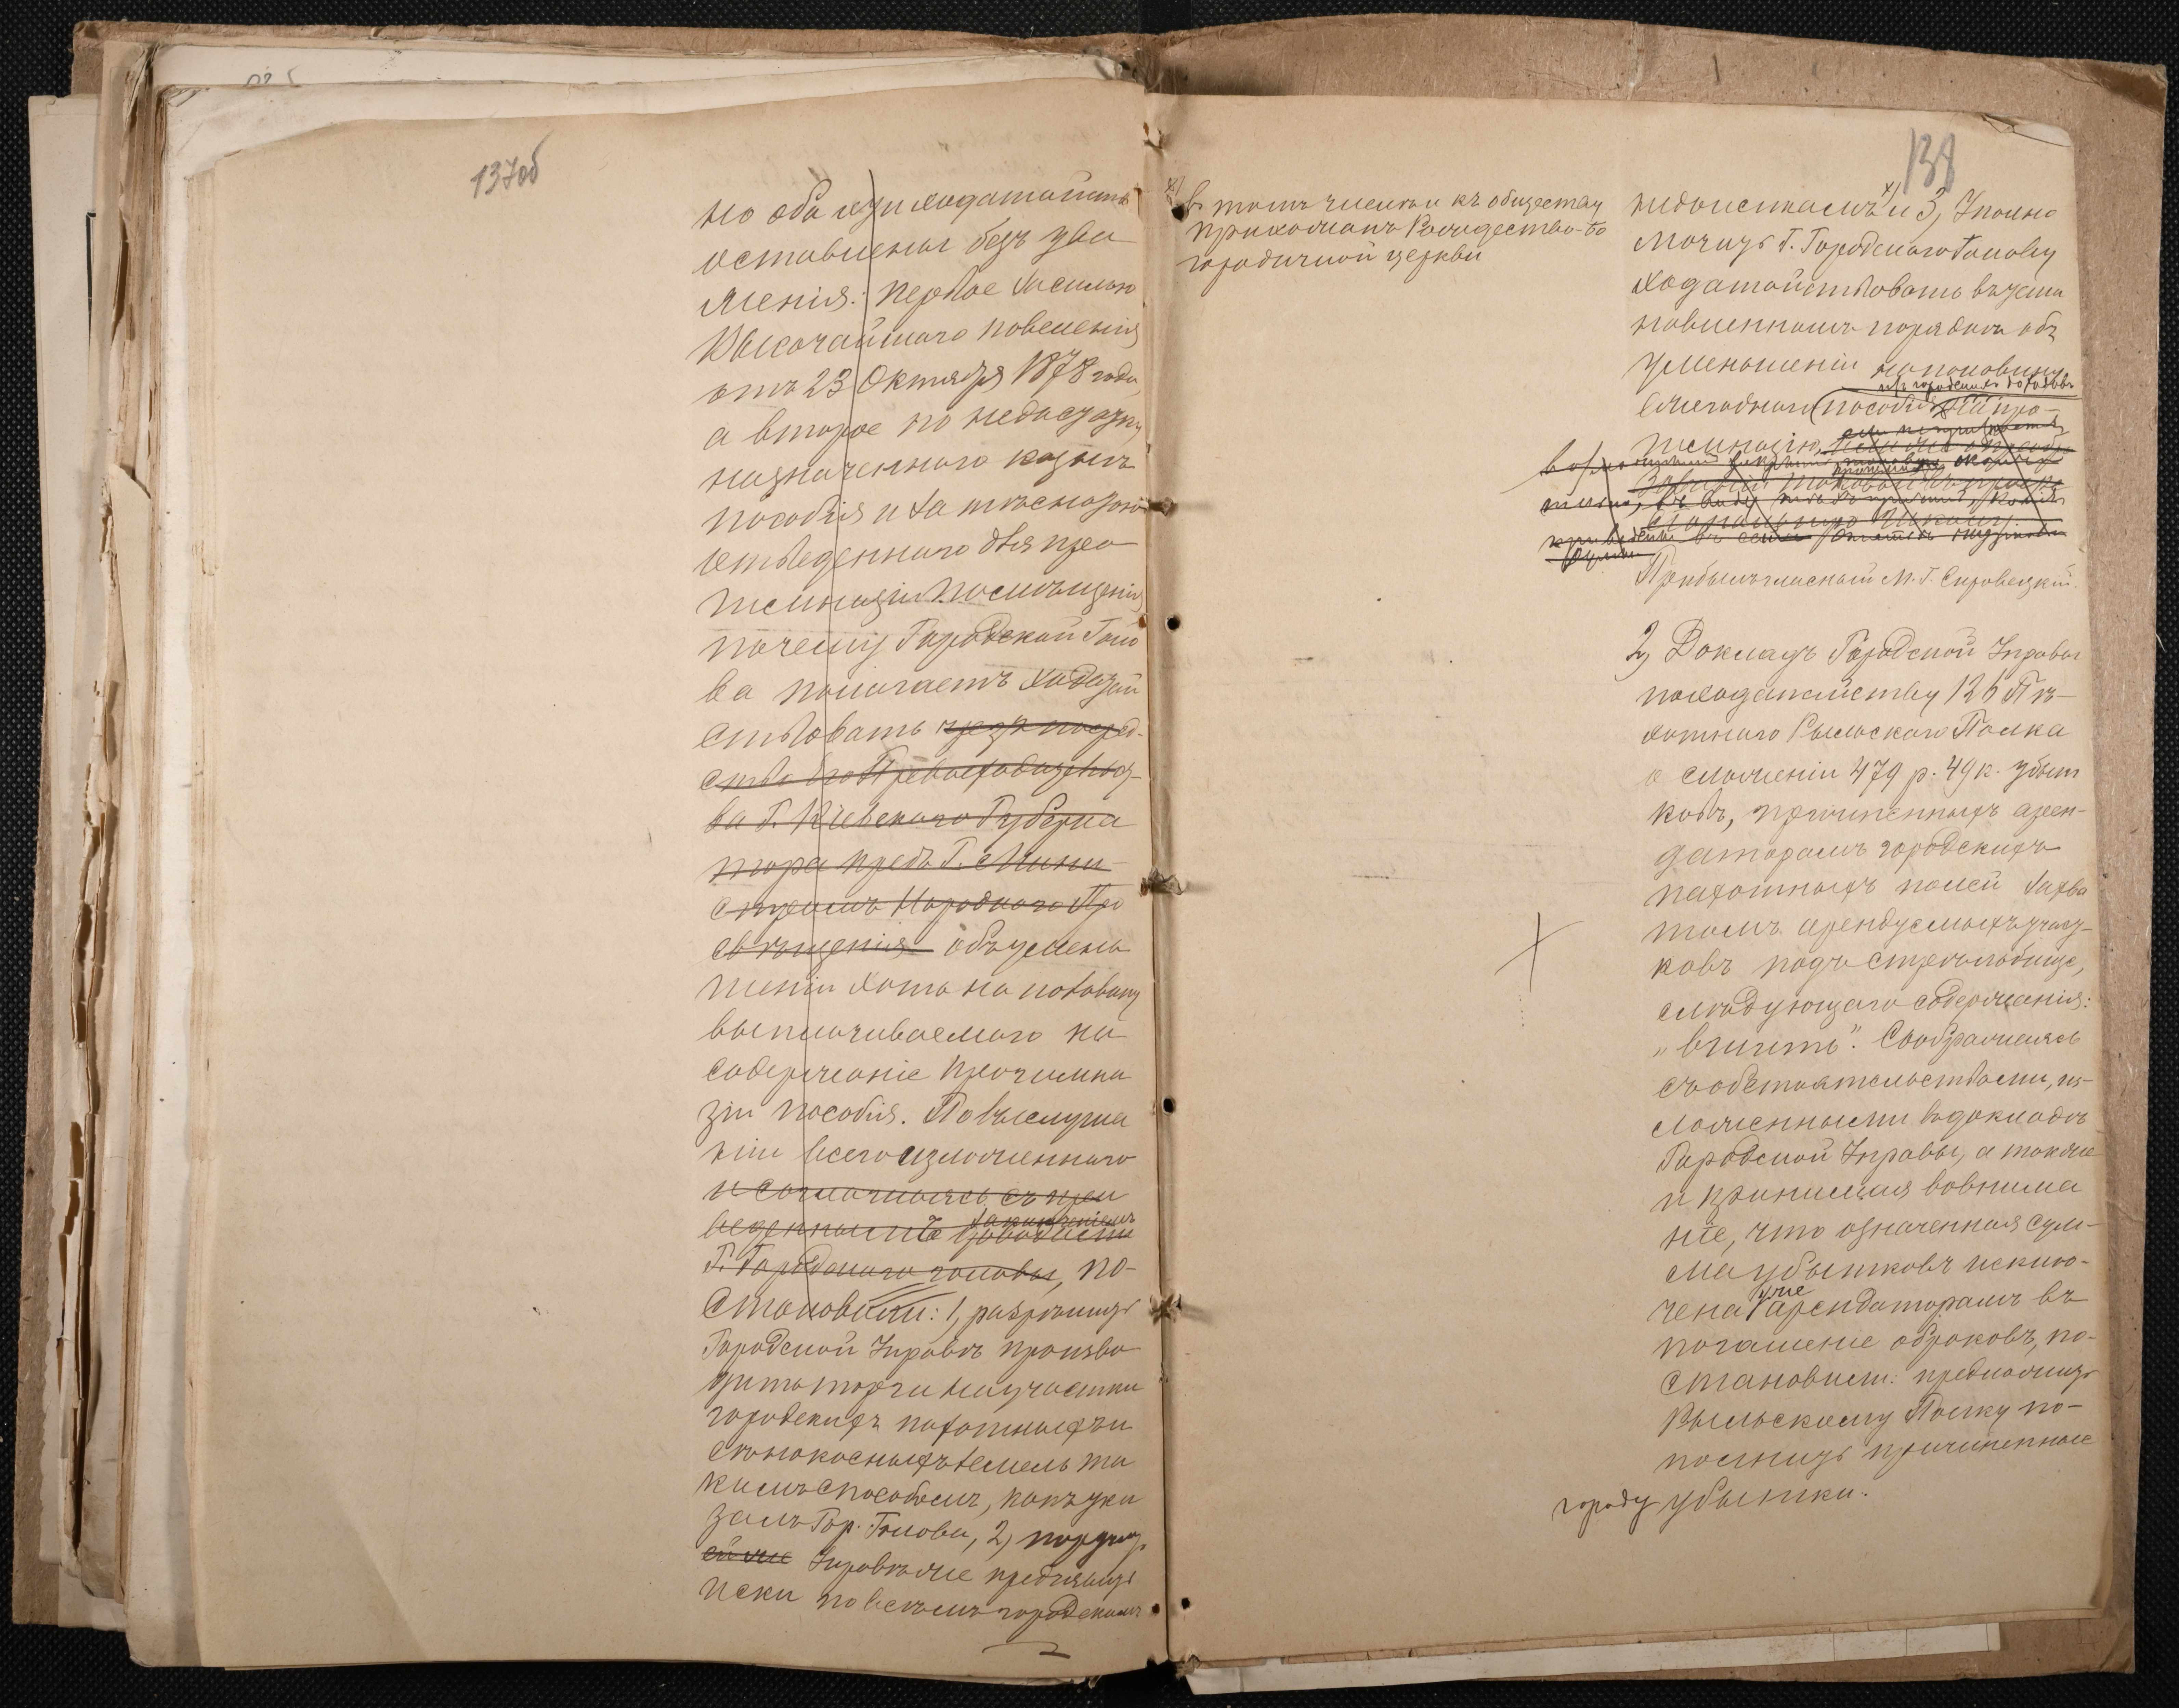 137об
но оба эти ходатайства
оставлены безъ ува
женія: первое засилою
Высочайшаго повеленія
отъ 23 Октября 1878 года,
а второе по недостатку
назначеннаго казною
пособія и за тѣснотою
отведеннаго для про
гимназіи помѣщенія,
почему Городской Голо
ва полагаетъ ходатай
ствовать чрезъ посред-
ство его Превосходительст-
ва Г. Кіевскаго Губерна
тора предъ Г. Мини-
стромъ Народнаго Про
свѣщенія объ умень
шеніи хотя на половину
выплачиваемаго на
содержаніе прогимна
зіи пособія. По выслуша
ніи всего изложеннаго
и соглашаясь съ при
веденными доводами
заключеніемъ
Г. Городскаго головы, по-
становили: 1, разрѣшить
Городской Управѣ произво
дить торги на участки
городскихъ пахотныхъ и
сѣнокосныхъ земель та
кимъ способомъ, какъ ука
залъ Гор. Голова, 2, поручить
ей же Управѣ же предъявить
иски по всѣмъ городскимъ
138
х) въ томъ числѣ и къ обществу
прихожанъ Рождество-Бо
городичной церкви
недоимкамъ х) и 3, Уполно
мочить Г. Городскаго Голову
ходатайствовать въ уста
новленномъ порядкѣ объ
уменьшеніи на половину
изъ городскихъ доходовъ
ежегоднаго пособія на про-
гимназію,
Прибылъ гласный М. Г. Сировецкій.
2, Докладъ Городской Управы
по ходатайству 126 Пѣ-
хотнаго Рыльскаго Полка
о сложеніи 479 р. 49 к. убыт
ковъ, причиненныхъ арен-
даторамъ городскихъ
пахотныхъ полей захва
томъ арендуемыхъ участ-
ковъ подъ стрельбище,
слѣдующаго содержанія:
„вписать". Соображаясь
съ обстоятельствами, из-
ложенными въ докладѣ
Городской Управы, а также
и принимая во внима
ніе, что означенная сум-
ма убытковъ исклю-
чена уже арендаторамъ въ
погашеніе оброковъ, по-
становили: предложить
Рыльскому Полку по-
полнить причиненные
городу убытки.